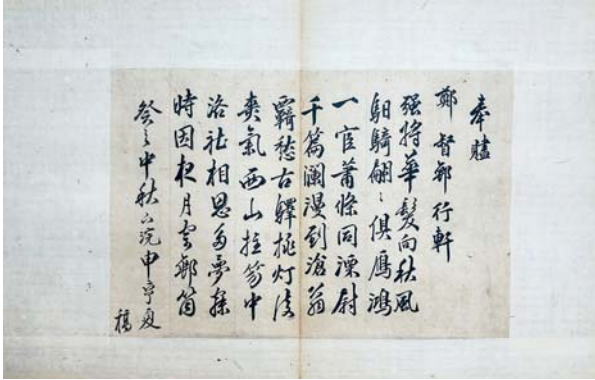 奉贐
鄭督郵行軒
强將華髮向秋風
馹騎翩〻俱鴈鴻
一官蕭條同溧尉
千篇瀾漫到滄翁
羇愁古驛挑灯後
爽氣西山拄笏中
洛社相思多夢
時因夜月寄郵筒
癸中秋申夏
稿